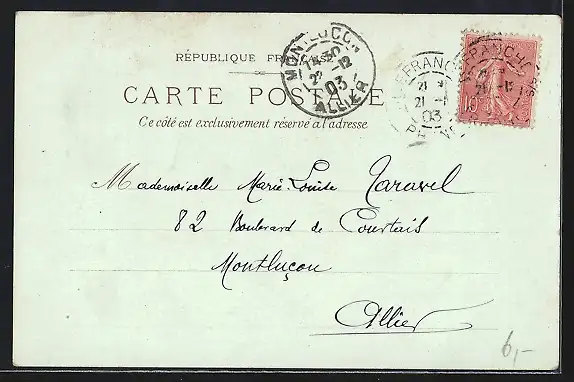 RÉPUBLIQUE FRANÇAISE
CARTE POSTALE
Ce côté est exclusivement réservé à l'adresse
MONTLUÇON
14-30
22-12
03
ALLIER
21
03
10
Mademoiselle Marie-Louise Taravel
82 Boulevard de Courtais
Montluçon
Allier
6,-